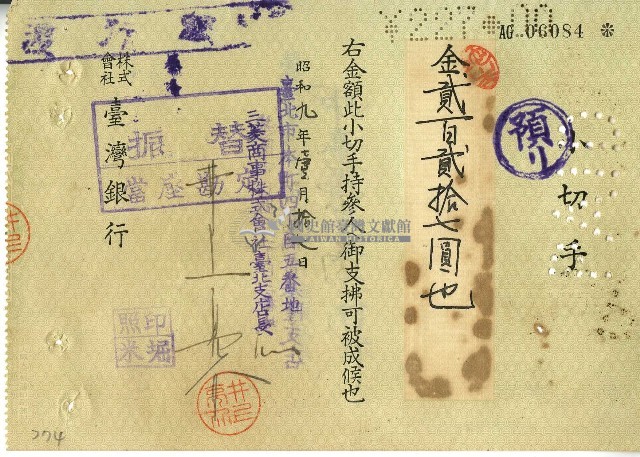 ¥227.00
AG 06084 *
預り
小切手
金貳百貳拾七圓也
右金額此小切手持參人ヘ御支拂可被成候也
昭和九年壹月拾 日
臺北市本町四丁目五番地
三菱商事株式會社臺北支店長
株式會社
臺灣銀行
振替
當座勘定
照印
米堀
國史館臺灣文獻館
TAIWAN HISTORICA
274